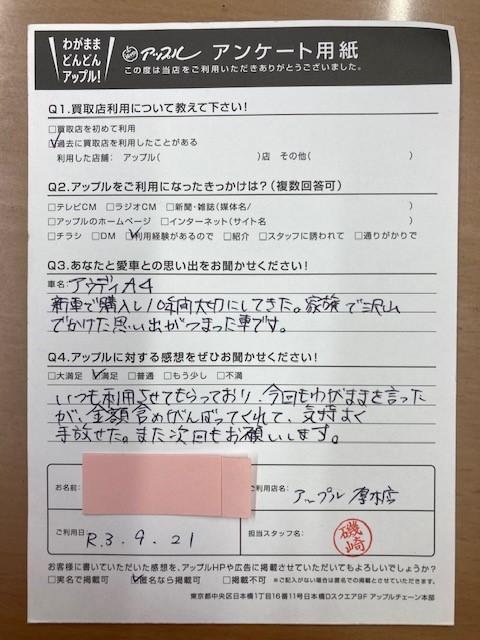 わがまま
どんどん
アップル!
アップル アンケート用紙
この度は当店をご利用いただきありがとうございました。
Q1.買取店利用について教えて下さい!
□買取店を初めて利用
☑過去に買取店を利用したことがある
利用した店舗: アップル( )店 その他( )
Q2.アップルをご利用になったきっかけは?(複数回答可)
□テレビCM □ラジオCM □新聞・雑誌(媒体名/ )
□アップルのホームページ □インターネット(サイト名 )
□チラシ □DM ☑利用経験があるので □紹介 □スタッフに誘われて □通りがかりで
Q3.あなたと愛車との思い出をお聞かせください!
車名: アウディA4
新車で購入し10年間大切にしてきた。家族で沢山
でかけた思い出がつまった車です。
Q4.アップルに対する感想をぜひお聞かせください!
□大満足 ☑満足 □普通 □もう少し □不満
いつも利用させてもらっており、今回もわがままを言った
が、金額含めがんばってくれて、気持よく
手放せた。また次回もお願いします。
お名前:
ご利用店名: アップル 厚木店
ご利用日: R.3.9.21
担当スタッフ名: 磯崎
お客様に書いていただいた感想を、アップルHPや広告に掲載させていただいてもよろしいでしょうか?
□実名で掲載可 ☑匿名なら掲載可 □掲載不可 ※ご記入がない場合は匿名での掲載とさせていただきます。
東京都中央区日本橋1丁目16番11号日本橋Dスクエア9F アップルチェーン本部